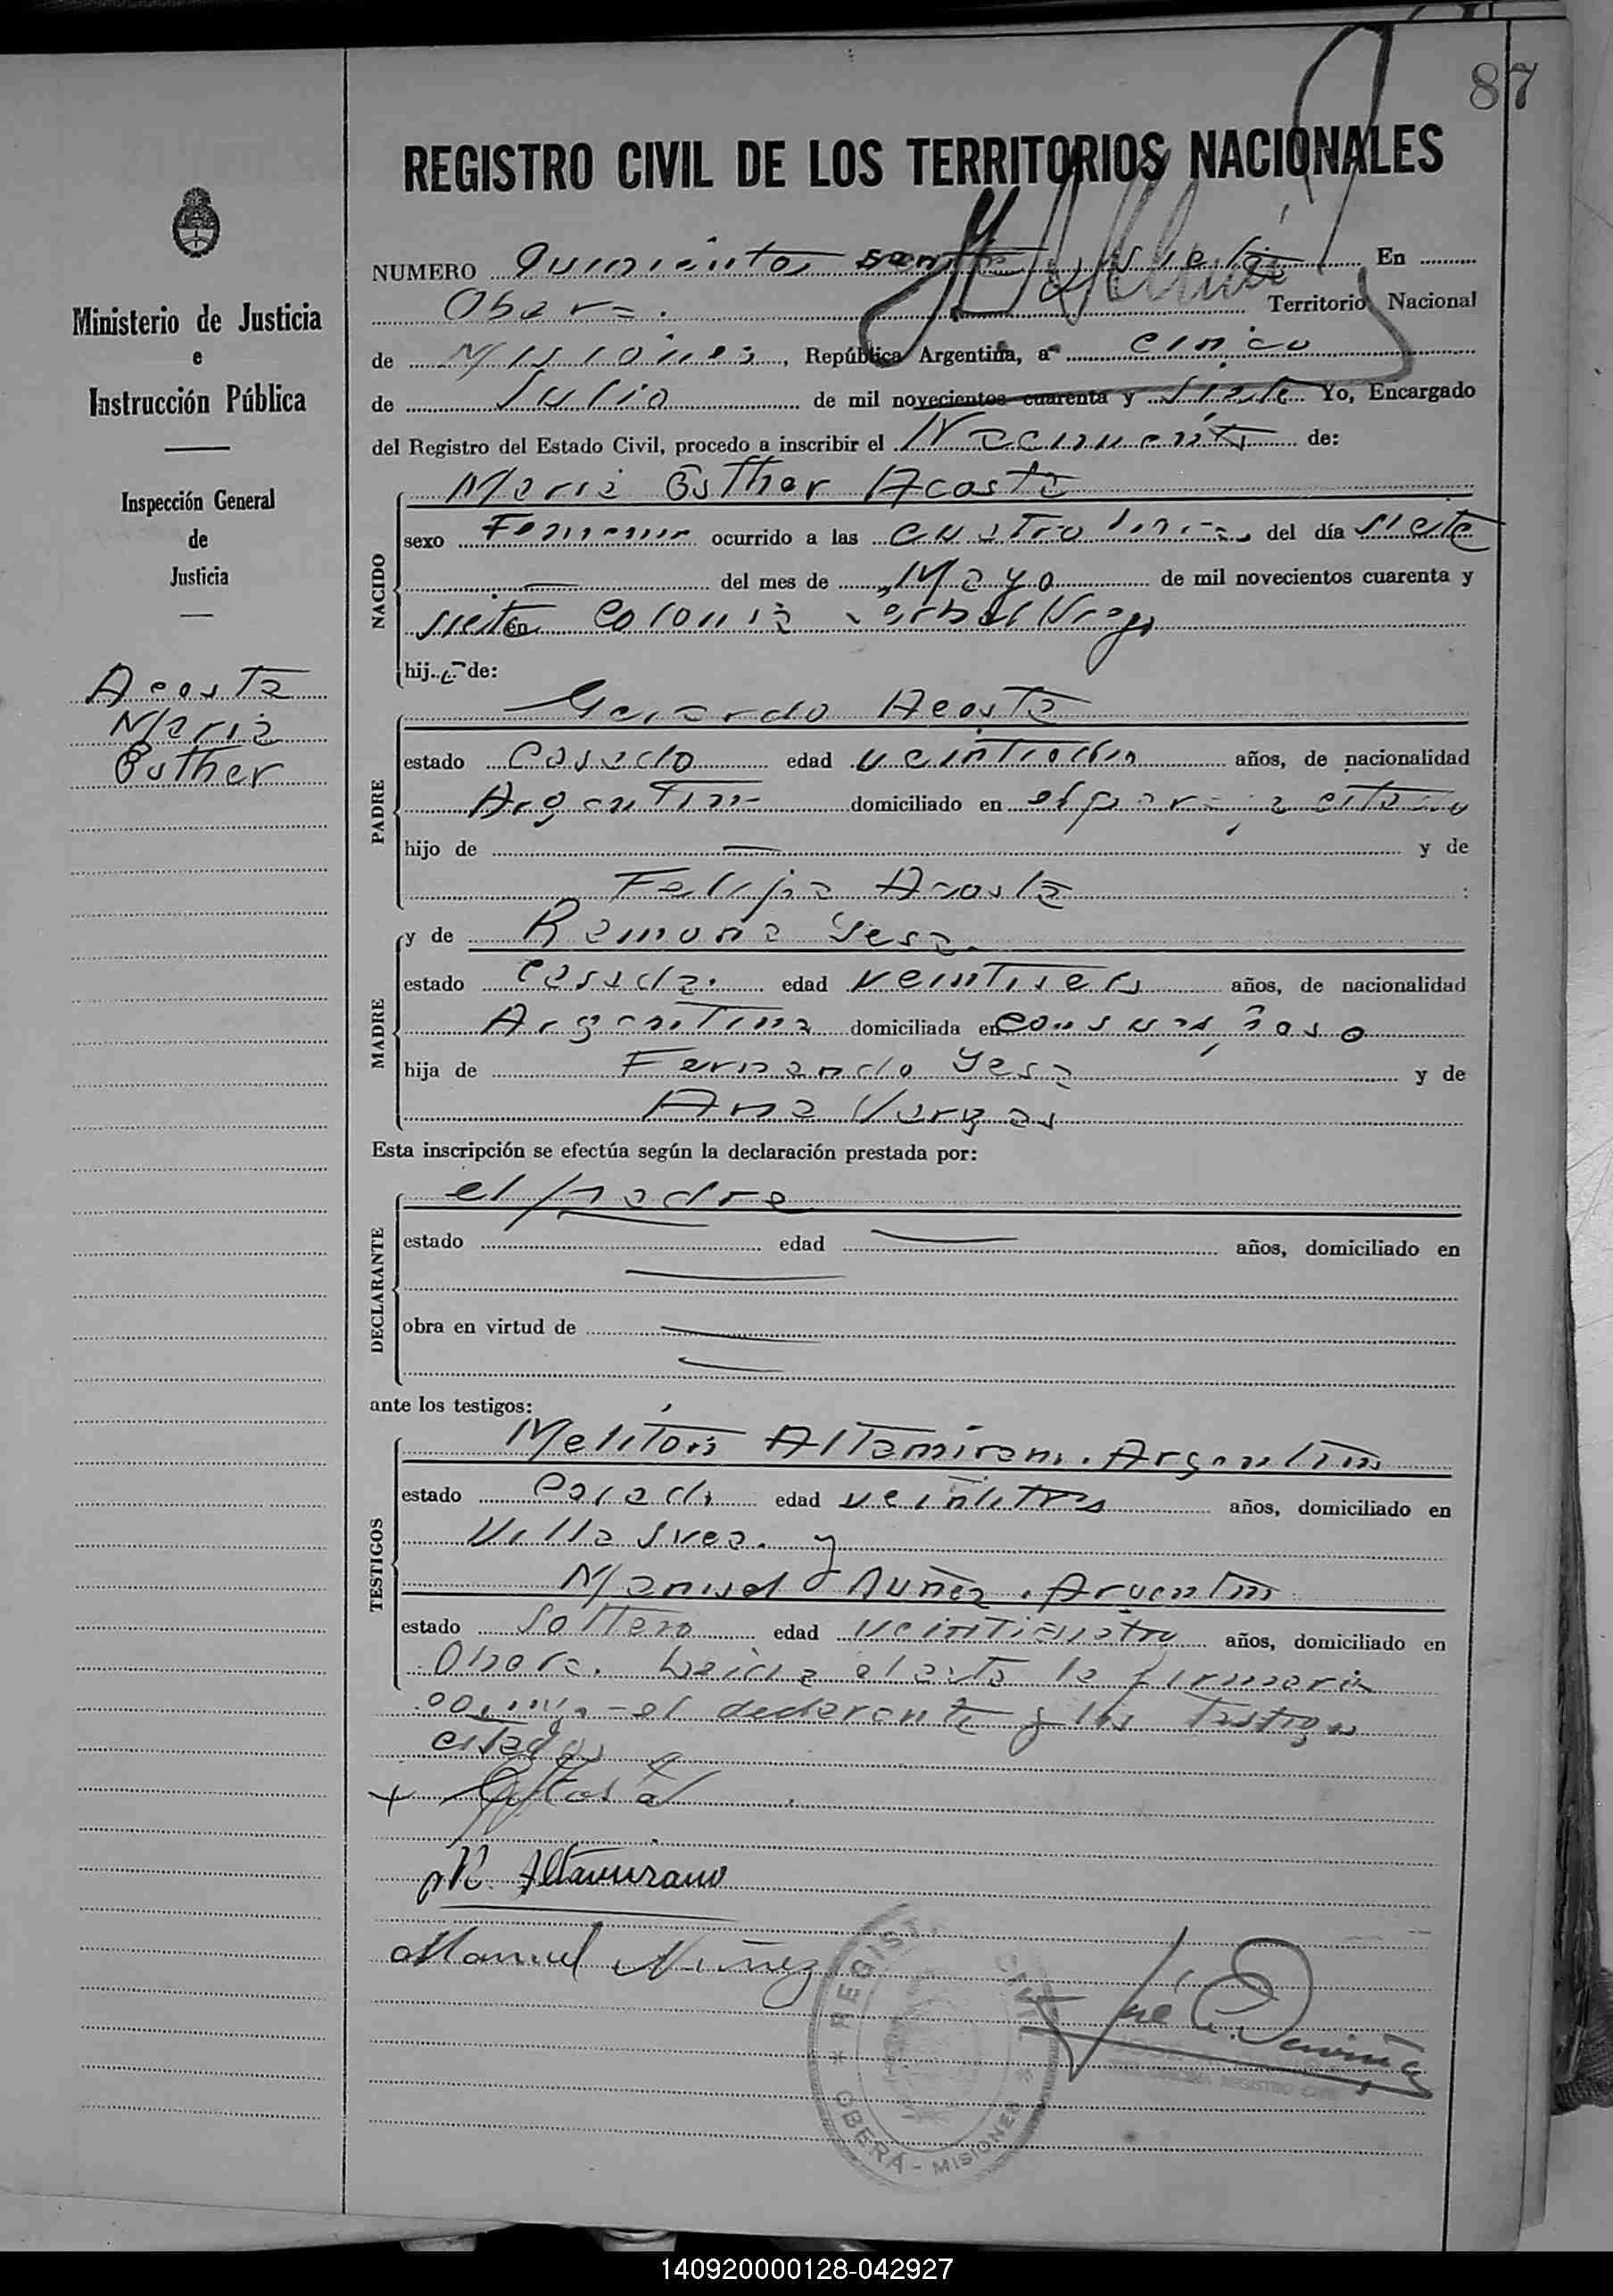 87
REGISTRO CIVIL DE LOS TERRITORIOS NACIONALES
NUMERO Quinientos siete En
Obera. Territorio Nacional
de Misiones, República Argentina, a cinco
de Julio de mil novecientos cuarenta y siete Yo, Encargado
del Registro del Estado Civil, procedo a inscribir el Nacimiento de:
Ministerio de Justicia
e
Instrucción Pública
Inspección General
de
Justicia
Acosta
Maria
Esther
NACIDO
Maria Esther Acosta
sexo Femenino ocurrido a las cuatro horas del día siete
del mes de Mayo de mil novecientos cuarenta y
siete en Colonia Yerbal
hija de:
PADRE
Gerardo Acosta
estado Casado edad años, de nacionalidad
Argentino domiciliado en
hijo de y de
Felipa Acosta
MADRE
y de Ramona Yesa
estado casada. edad veintiseis años, de nacionalidad
Argentina domiciliada en con su esposo
hija de Fernando Yesa y de
Ana Vargas
Esta inscripción se efectúa según la declaración prestada por:
DECLARANTE
el padre
estado edad años, domiciliado en
obra en virtud de
ante los testigos:
TESTIGOS
Melitón Altamirano. Argentino
estado Casado edad veintitres años, domiciliado en
Villa Svea. y
Manuel Nuñez. Argentino
estado Soltero edad veinticuatro años, domiciliado en
Obera. Leida el acta la firmaron
conmigo el declarante y los testigos
citados
+ Acosta
M. Altamirano
Manuel Nuñez
REGISTRO CIVIL
OBERÁ - MISIONES
José
140920000128-042927